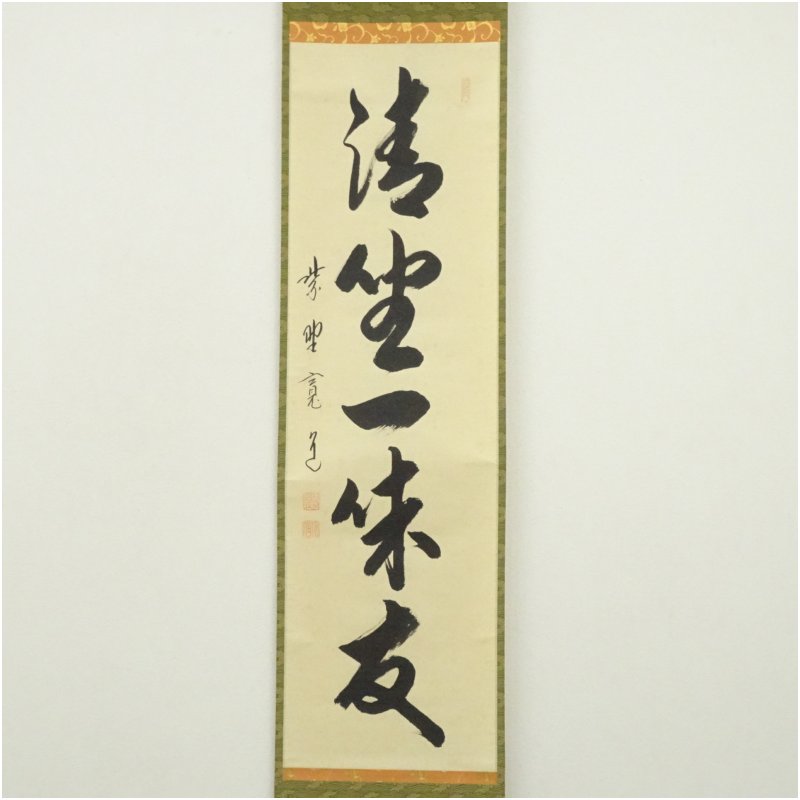 清坐一味友
紫野寛道